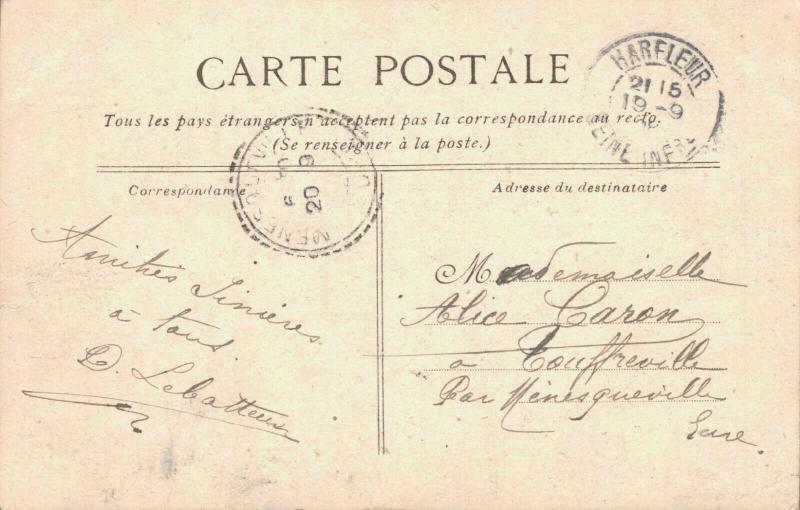 CARTE POSTALE
Tous les pays étrangers n'acceptent pas la correspondance au recto.
(Se renseigner à la poste.)
Correspondance
Adresse du destinataire
HARFLEUR
21 15
19 -9
SEINE INFRE
MENESQUEVILLE
20 9
Amitiés Sincères
à tous.
D. Lebatteux
Mademoiselle
Alice Caron
à Touffreville
Par Ménesqueville
Eure.